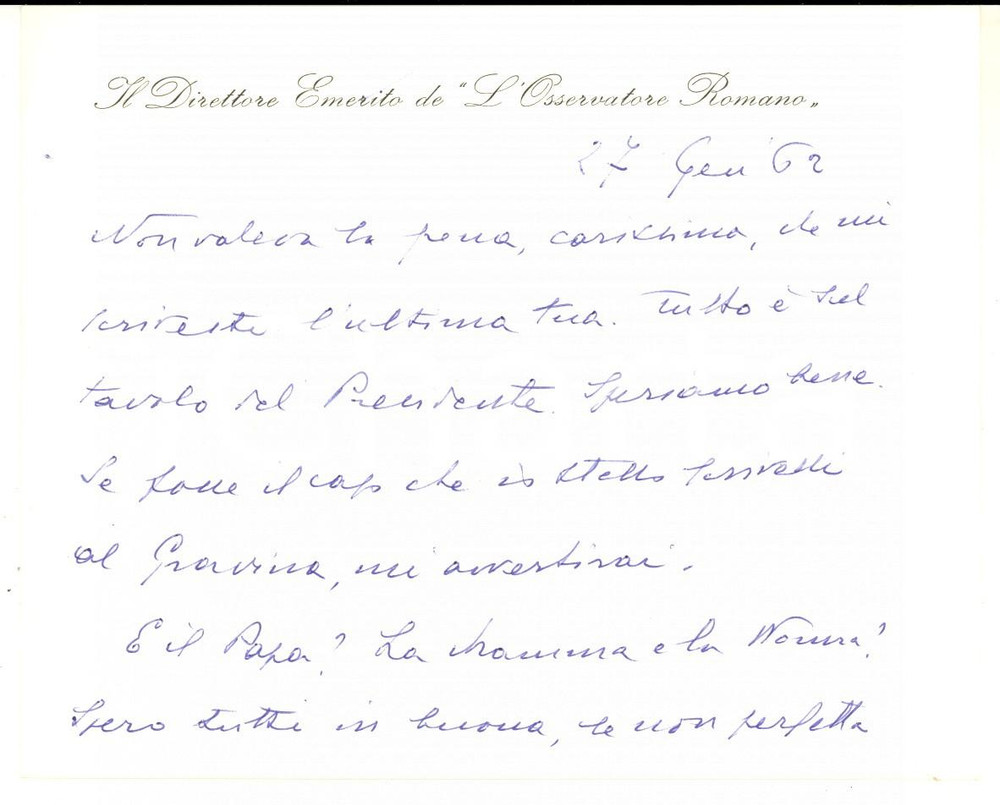 Il Direttore Emerito de "L'Osservatore Romano„
27 Gen 62
Non valeva la pena, carissimo, che mi
scriveste l'ultima tua. Tutto è sul
tavolo del Presidente. Speriamo bene.
Se fosse il caso che io stesso scrivessi
al Gravina, mi avvertirai.
E il Papa? La Mamma e la Nonna?
Spero tutti in buona, se non perfetta